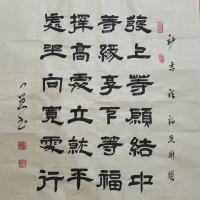 發上等願結中
等緣享下等福
擇高處立就平
處坐向寬處行